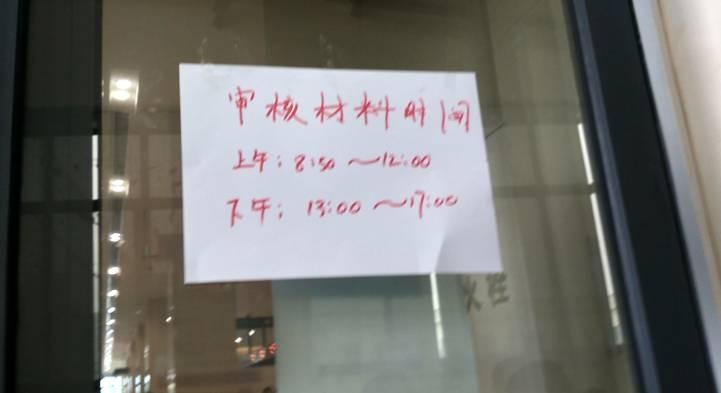 审核材料时间
上午：8:50～12:00
下午：13:00～17:00